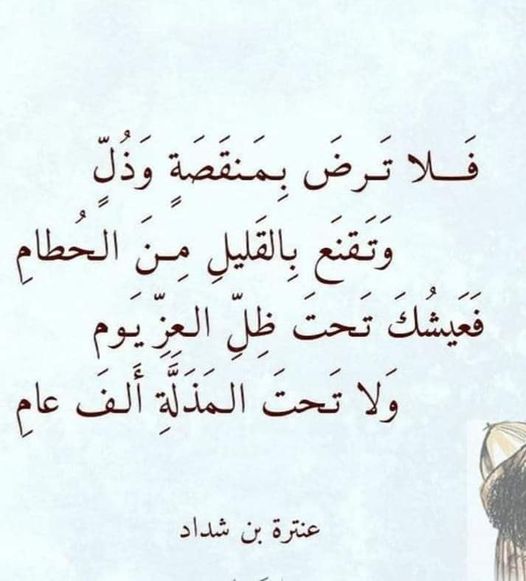 فَـلا تَـرضَ بِـمَـنقَصَةٍ وَذُلٍّ
وَتَـقنَع بِالقَليلِ مِـنَ الـحُطامِ
فَعَيشُكَ تَـحتَ ظِلِّ الـعِزِّ يَـوم
وَلا تَـحتَ الـمَذَلَّةِ أَلـفَ عامِ
عنترة بن شداد